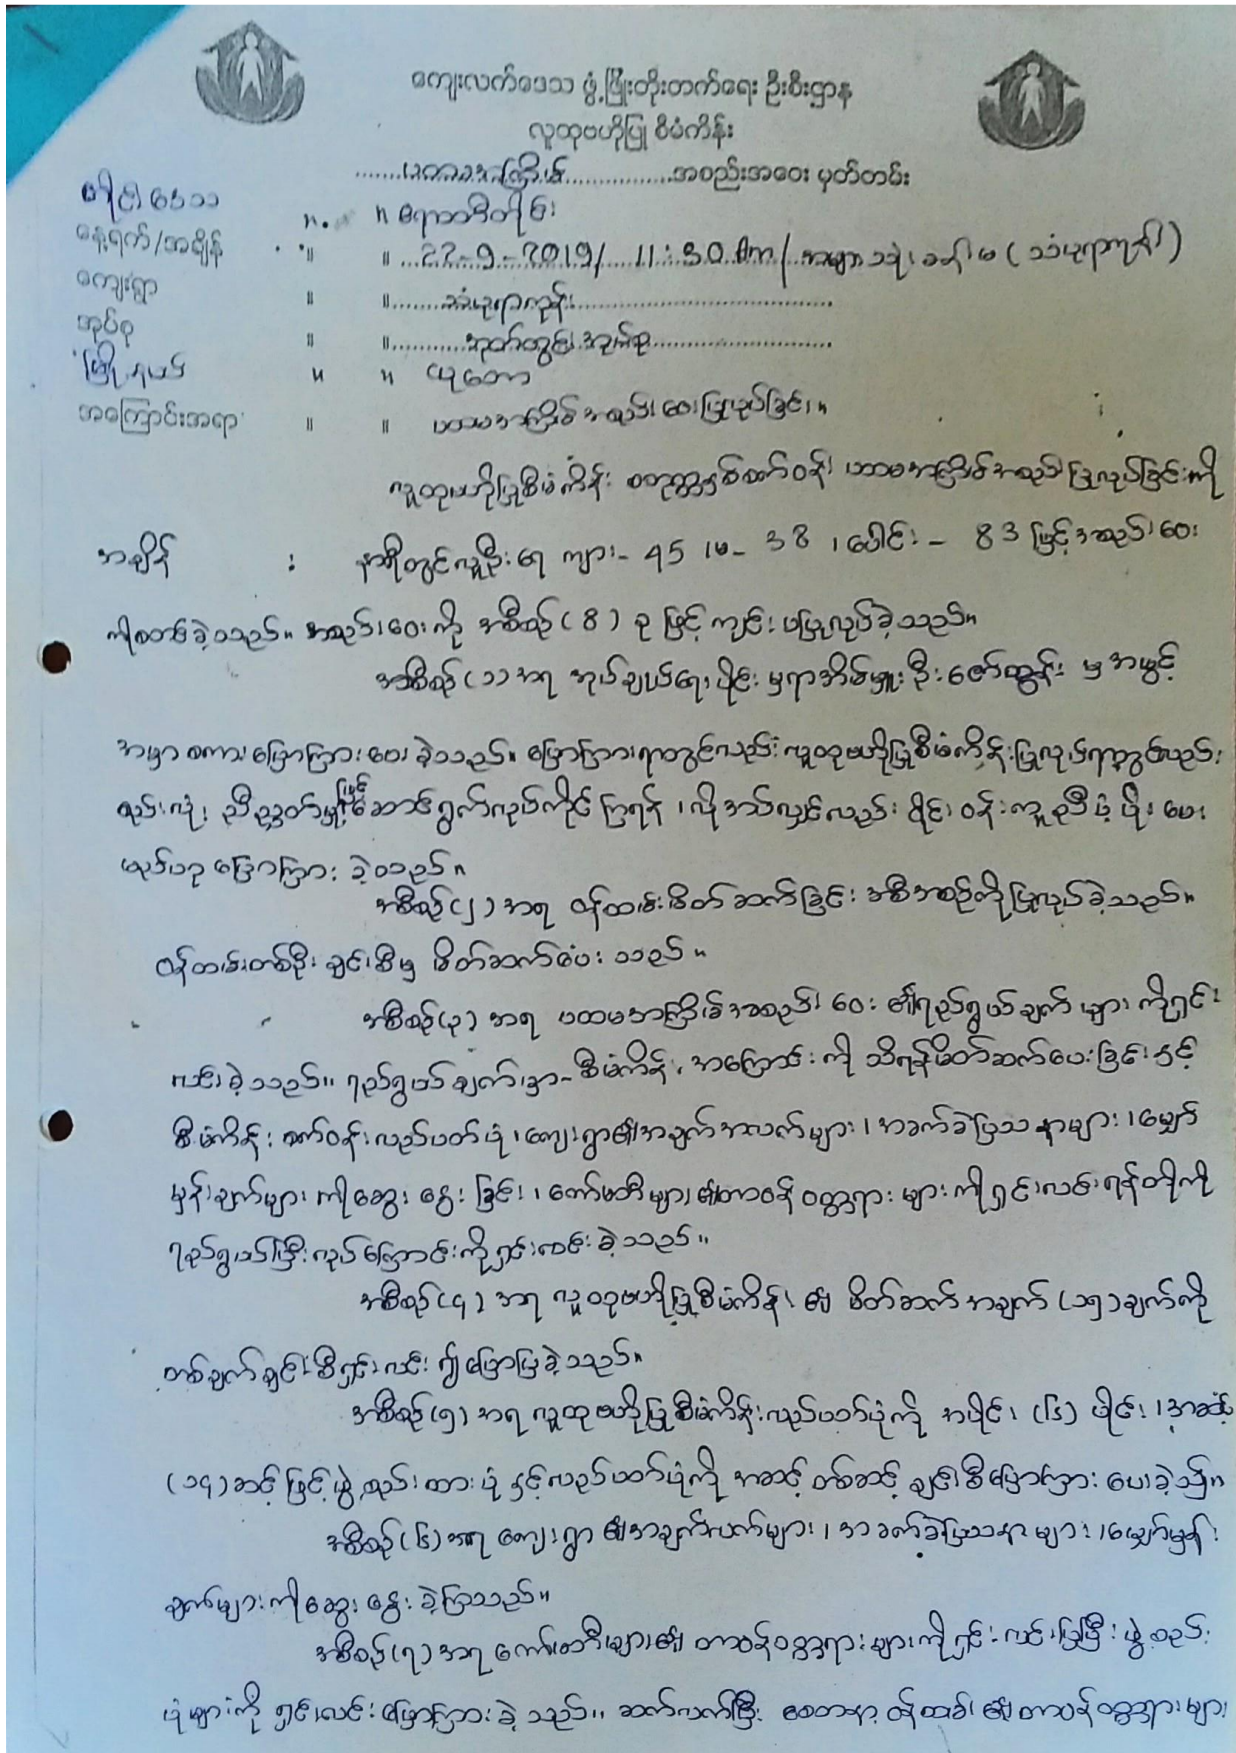 ကျေးလက်ဒေသ ဖွံ့ဖြိုးတိုးတက်ရေး ဦးစီးဌာန
လူထုဗဟိုပြု စီမံကိန်း
......ပထမအကြိမ်..............အစည်းအဝေး မှတ်တမ်း
တိုင်းဒေသ ။ ။ ဧရာဝတီတိုင်း
နေ့ရက်/အချိန် ။ ။ ...22-9-2019/ 11:30 Am/
ကျေးရွာ ။ ။.......သံပုရာကုန်း..............
အုပ်စု ။ ။.........အုပ်စု..............
မြို့နယ် ။ ။ ဖျာပုံ
အကြောင်းအရာ ။ ။ ပထမအကြိမ် အစည်းအဝေးပြုလုပ်ခြင်း။
လူထုဗဟိုပြုစီမံကိန်း စတုတ္ထနှစ်စက်ဝန်း ပထမအကြိမ်အစည်းပြုလုပ်ခြင်းကို
အချိန် : နာရီတွင်လူဦးရေ ကျား- 45 ၊မ- 38 ၊ပေါင်း- 83 ဖြင့်အစည်းဝေး
ကိုစတင်ခဲ့သည်။ အစည်းဝေးကို အစီစဉ် (8) ခု ဖြင့် ကျင်းပပြုလုပ်ခဲ့သည်။
အစီစဉ်(၁)အရ အုပ်ချုပ်ရေးပိုင်းမှရာအိမ်မှူးဦးဇော်ထွန်း မှ အဖွင့်
အမှာစကားပြောကြားပေးခဲ့သည်။ ပြောကြားရာတွင်လည်း လူထုဗဟိုပြုစီမံကိန်းပြုလုပ်ရာတွင်လည်း
စည်းလုံး ညီညွတ်မှုဖြင့်ဆောင်ရွက်လုပ်ကိုင်ကြရန်၊ လိုအပ်လျှင်လည်း ဝိုင်းဝန်းကူညီပံ့ပိုးပေး
မည်ဟုပြောကြားခဲ့သည်။
အစီစဉ်(၂)အရ ဝန်ထမ်းမိတ်ဆက်ခြင်း အစီအစဉ်ကိုပြုလုပ်ခဲ့သည်။
ဝန်ထမ်းတစ်ဦးချင်းစီမှ မိတ်ဆက်ပေးသည်။
အစီစဉ်(၃) အရ ပထမအကြိမ်အစည်းဝေး ၏ရည်ရွယ်ချက်များကိုရှင်း
လင်းခဲ့သည်။ ရည်ရွယ်ချက်မှာ- စီမံကိန်းအကြောင်းကို သိရန်မိတ်ဆက်ပေးခြင်းနှင့်
စီမံကိန်းစက်ဝန်းလည်ပတ်ပုံ၊ ကျေးရွာ၏အချက်အလက်များ၊ အခက်ခဲပြဿနာများ၊ မျှော်
မှန်းချက်များကိုဆွေးနွေးခြင်း၊ ကော်မတီများ၏တာဝန်ဝတ္တရားများကိုရှင်းလင်းရန်တို့ကို
ရည်ရွယ်ပြီးလုပ်ကြောင်းကိုရှင်းလင်းခဲ့သည်။
အစီစဉ်(၄) အရ လူထုဗဟိုပြုစီမံကိန်း ၏ မိတ်ဆက်အချက် (၁၅)ချက်ကို
တစ်ချက်ချင်းစီရှင်းလင်း၍ပြောပြခဲ့သည်။
အစီစဉ်(၅) အရ လူထုဗဟိုပြုစီမံကိန်းလည်ပတ်ပုံကို အပိုင်း (၆) ပိုင်း ၊အဆင့်
(၁၄)ဆင့်ဖြင့်ဖွဲ့စည်းထားပုံနှင့်လည်ပတ်ပုံကို အဆင့်တစ်ဆင့်ချင်းစီပြောကြားပေးခဲ့သည်။
အစီစဉ်(၆)အရ ကျေးရွာ၏အချက်လက်များ၊ အခက်ခဲပြဿနာများ၊ မျှော်မှန်း
ချက်များကိုဆွေးနွေးခဲ့ကြသည်။
အစီစဉ်(၇)အရ ကော်မတီများ၏ တာဝန်ဝတ္တရားများကိုရှင်းလင်းပြပြီးဖွဲ့စည်း
ပုံများကို ရှင်းလင်းပြောကြားခဲ့သည်။ ဆက်လက်ပြီး စေတနာ့ဝန်ထမ်း၏တာဝန်ဝတ္တရားများ